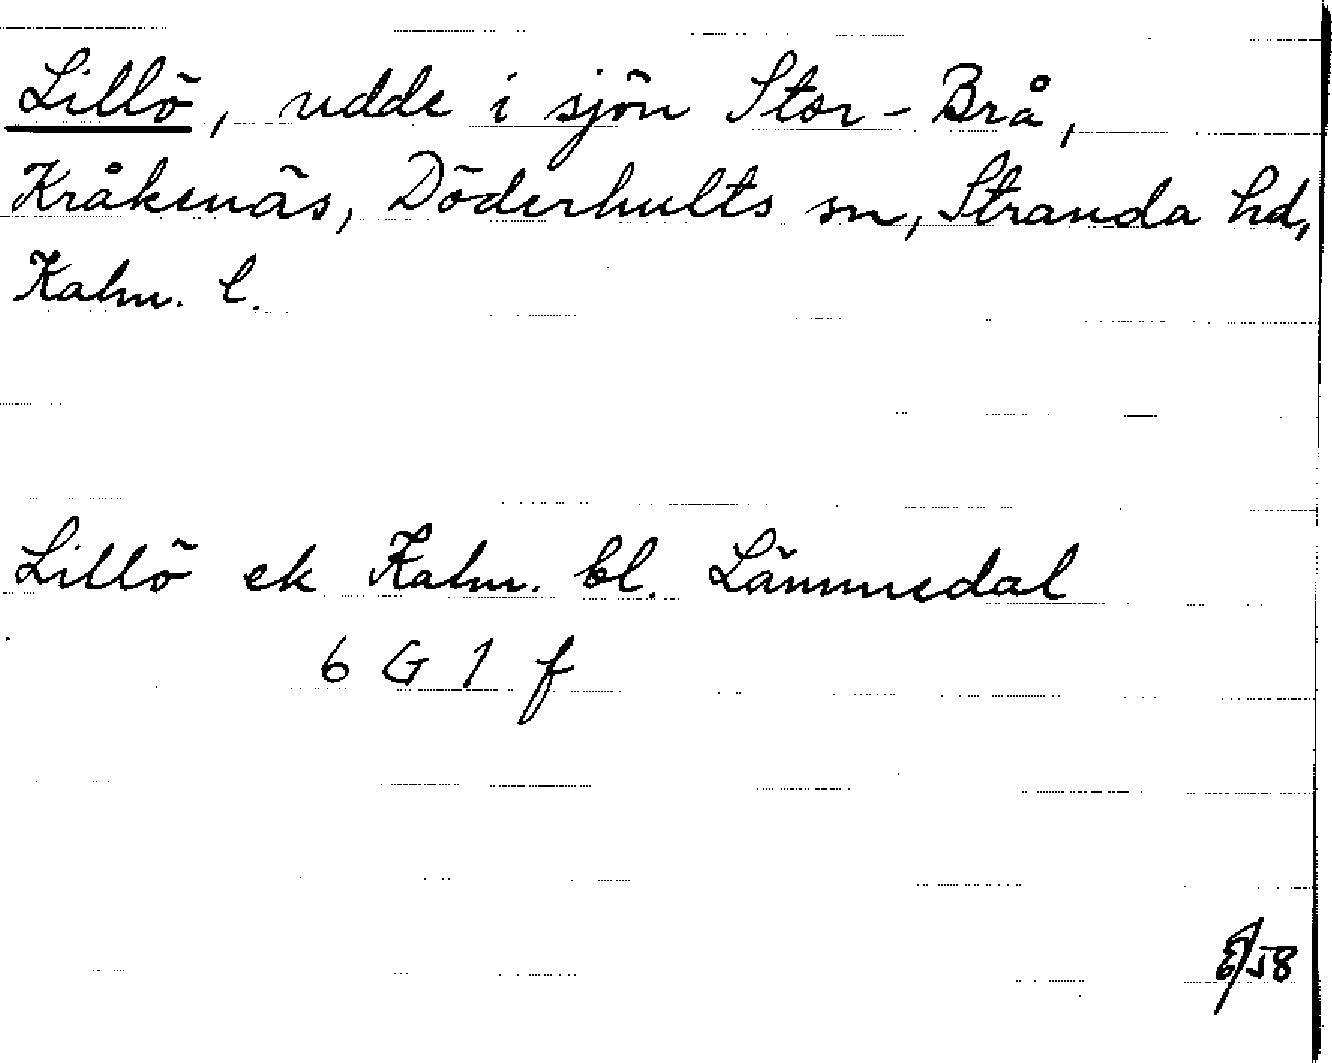 Lillö, udde i sjön Stor-Brå,
Kråkenäs, Döderhults sn, Stranda hd,
Kalm. l.
Lillö ek Kalm. bl. Lämmedal
6 G 1 f
58